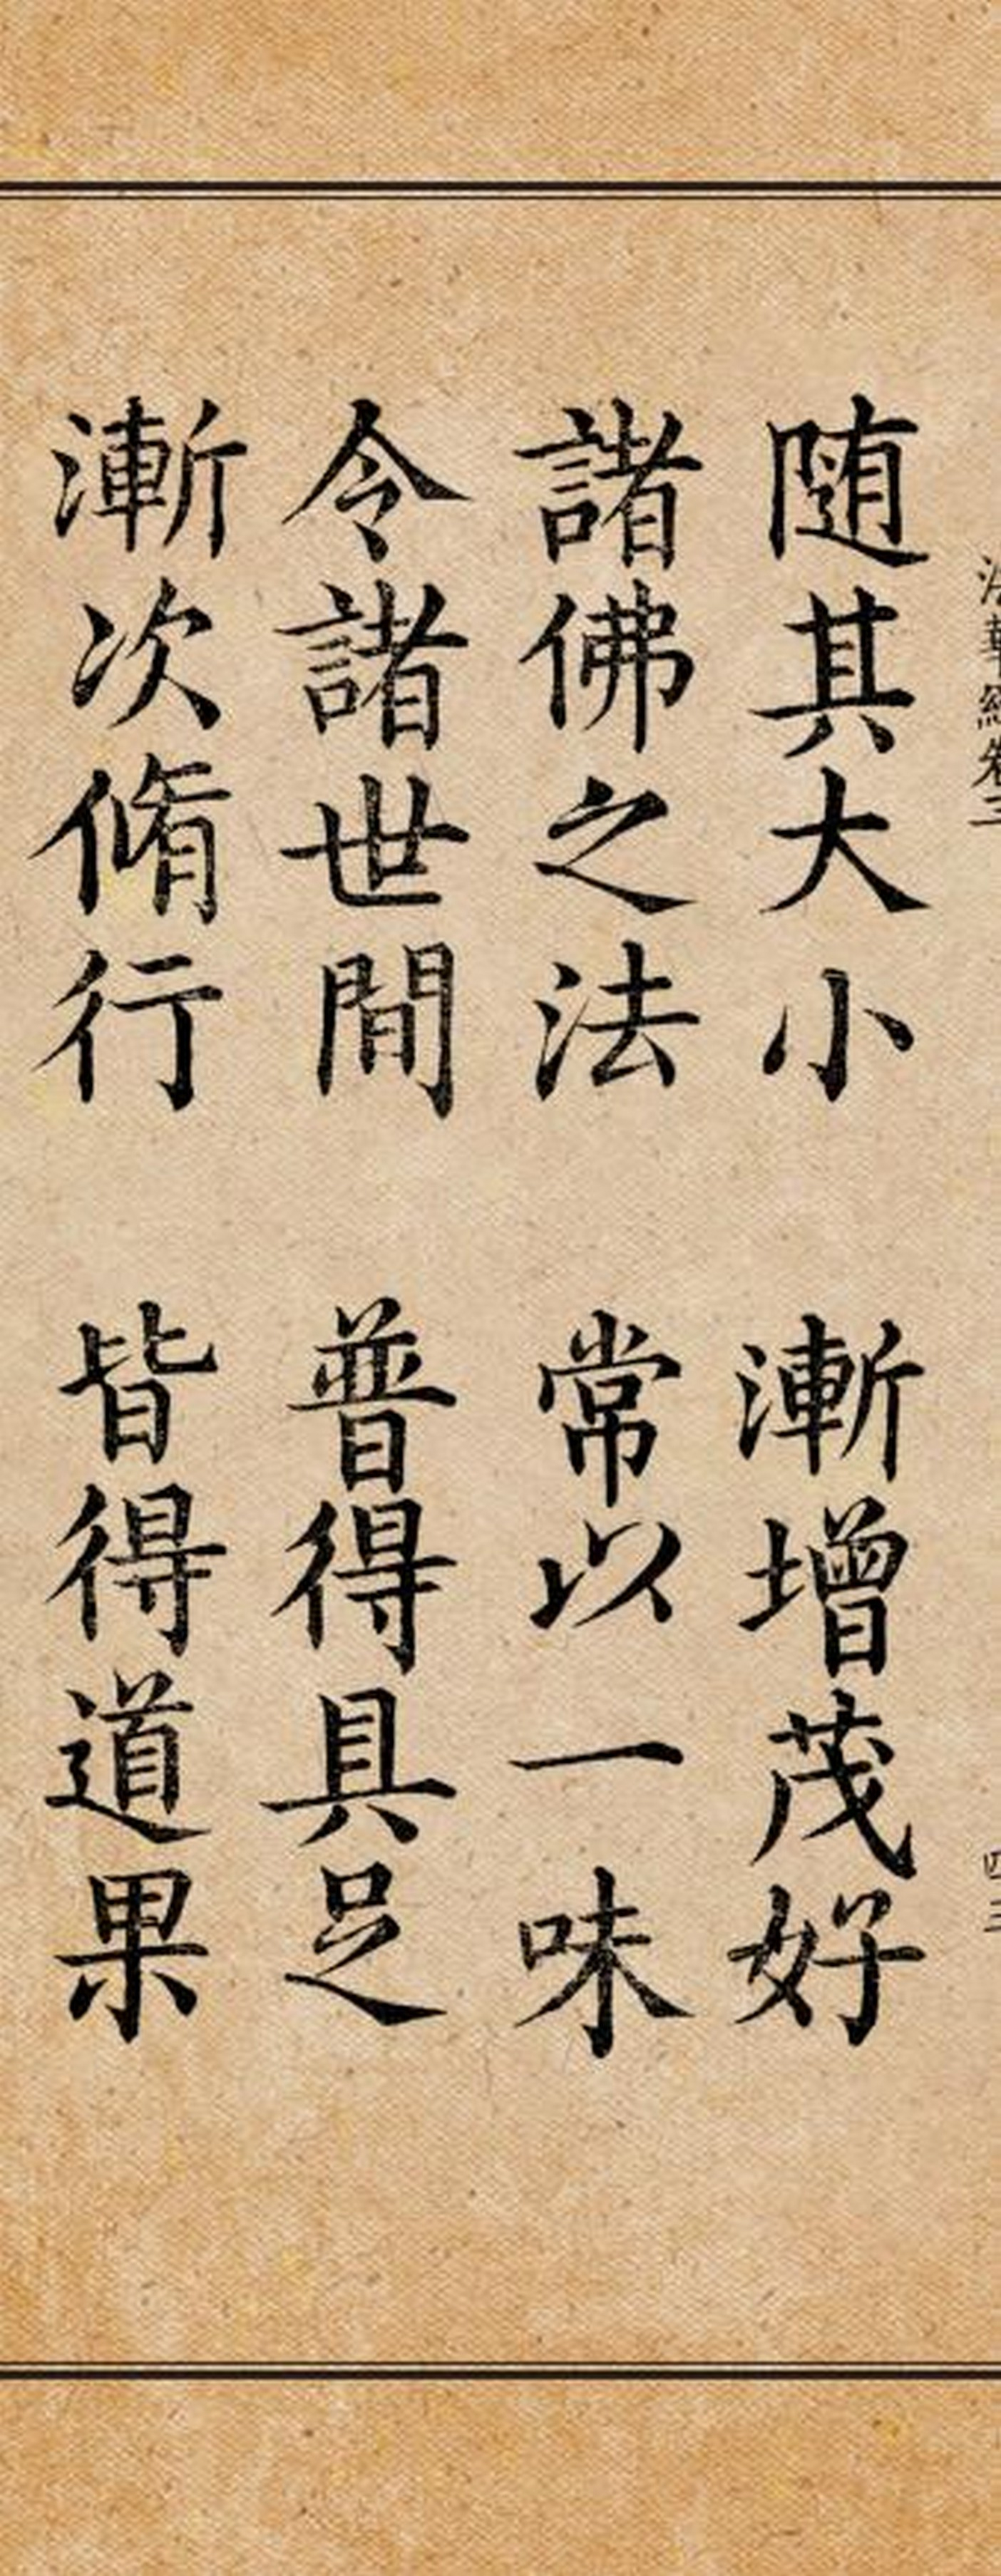 法華經卷三 四三
随其大小 漸增茂好
諸佛之法 常以一味
令諸世間 普得具足
漸次脩行 皆得道果